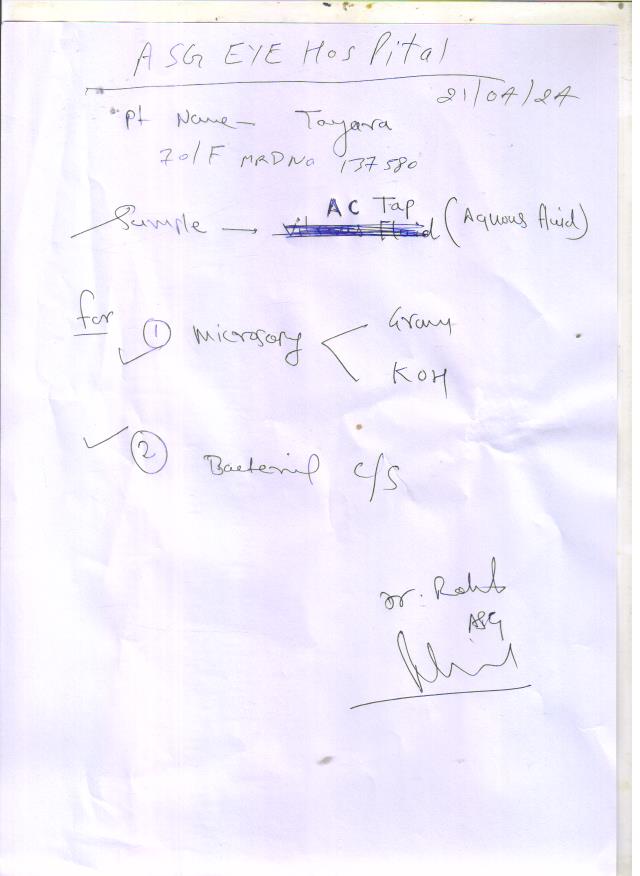 ASG EYE Hospital
21/04/24
Pt Name - Tayara
70/F MRD No 137580
Sample → AC Tap (Aquous fluid)
for ① Microsopy < Gram
KOH
② Bacterial c/s
Dr. Rohit
ASG